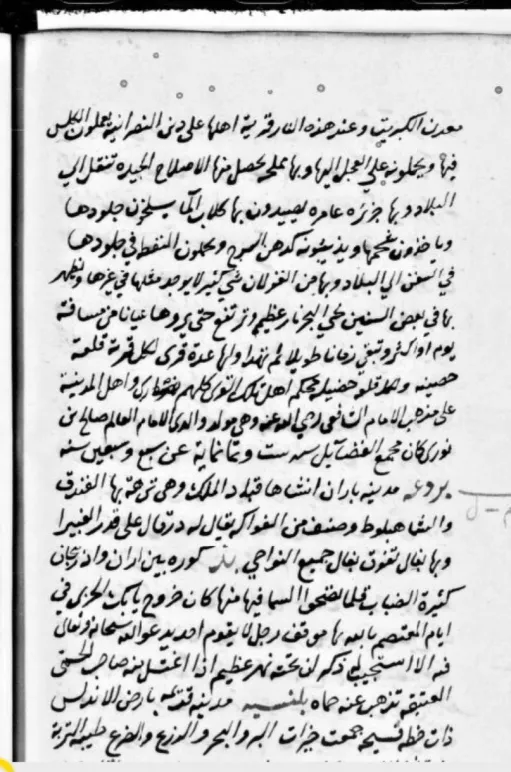 معدن الكبريت وعند هذه النار قرية اهلها على دين النصرانية يعملون الكلس
فيها ويحملونه على العجل اليها وبها ملحة يحصل منها الاملاح الجيده تنقل الي
البلاد وبها جزيره عامره يصيدون بها كلاب الما يسلخون جلودها
وياخذون شحمها ويذيبونه كدهن السرج ويحملون النفط في جلودها
في السفن الي البلاد وبها من الغزلان شي كثير لا يوجد مثلها في غيرها ويظهر
بها في بعض السنين على البحر نار عظيم وترتفع حتى يروها عيانا من مسافة
يوم او اكثر وتبقى زمانا طويلا ثم تهدا ولها عدة قرى لكل قرية قلعة
حصينه وكل قلعة حصينة محكم اهل تلك القرى كلهم نصارى واهل المدينة
على مذهب الامام الشافعي رضي الله عنه وهي مولد والدي الامام العالم صالح بن
نوري كان مجمع الفضايل سنه ست وثمانماية عن سبع وسبعين سنه
بردعه مدينه باران انشاها قباد الملك وهي نزهة بها الفندق
والشاهبلوط وصنف من الفواكه يقال له درقال على قدر الغبيرا
وبها بغال تفوق بغال جميع النواحي بذ كوره بين اران واذربيجان
كثيرة الضباب قلما تضحوا السما فيها منها كان خروج بابك الخرمي في
ايام المعتصم بالله بها موقف رجل لا يقوم احد يدعوا الله سبحانه وتعالى
فيه الا استجيب له ذكر ان تحته نهر عظيم اذا اغتسل منه صاحب الحمى
العتيقه تذهب عنه حماه بلنسيه مدينه قديمه بارض الاندلس
ذات خطة فسيحه جمعت خيرات البر والبحر والزرع والضرع طيبه التربة